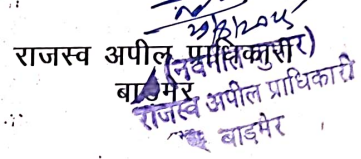 राजस्व अपील प्राधिकारी
(नवनीत कुमार)
बाडमेर
राजस्व अपील प्राधिकारी
बाडमेर